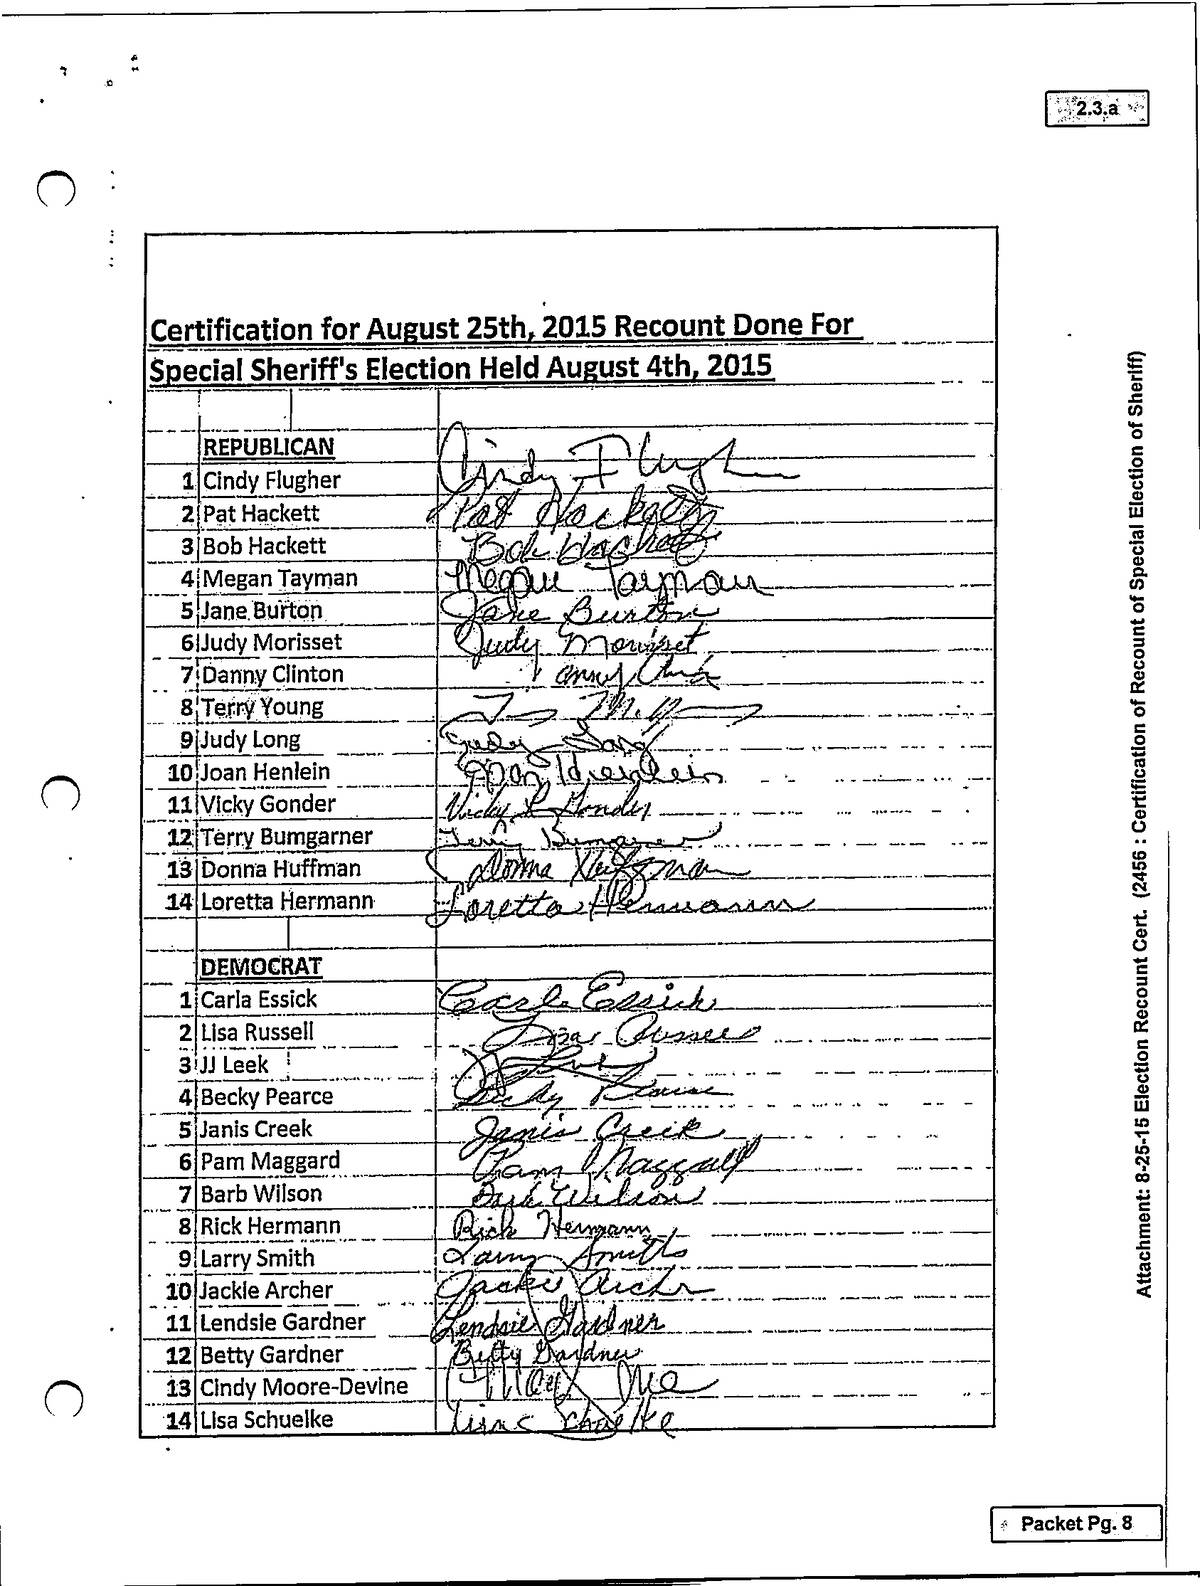 2.3.a
Certification for August 25th, 2015 Recount Done For
Special Sheriff's Election Held August 4th, 2015
REPUBLICAN
1 Cindy Flugher Cindy Flugher
2 Pat Hackett Pat Hackett
3 Bob Hackett Bob Hackett
4 Megan Tayman Megan Tayman
5 Jane Burton Jane Burton
6 Judy Morisset Judy Morisset
7 Danny Clinton
8 Terry Young
9 Judy Long Judy Long
10 Joan Henlein Joan Henlein
11 Vicky Gonder Vicky L Gonder
12 Terry Bumgarner
13 Donna Huffman Donna Huffman
14 Loretta Hermann Loretta Hermann
DEMOCRAT
1 Carla Essick Carla Essick
2 Lisa Russell Lisa Russell
3 JJ Leek JJ Leek
4 Becky Pearce Becky Pearce
5 Janis Creek Janis Creek
6 Pam Maggard Pam Maggard
7 Barb Wilson Barb Wilson
8 Rick Hermann Rick Hermann
9 Larry Smith Larry Smith
10 Jackie Archer Jackie Archer
11 Lendsie Gardner Lendsie Gardner
12 Betty Gardner Betty Gardner
13 Cindy Moore-Devine
14 Lisa Schuelke Lisa Schuelke
Attachment: 8-25-15 Election Recount Cert. (2456 : Certification of Recount of Special Election of Sheriff)
Packet Pg. 8